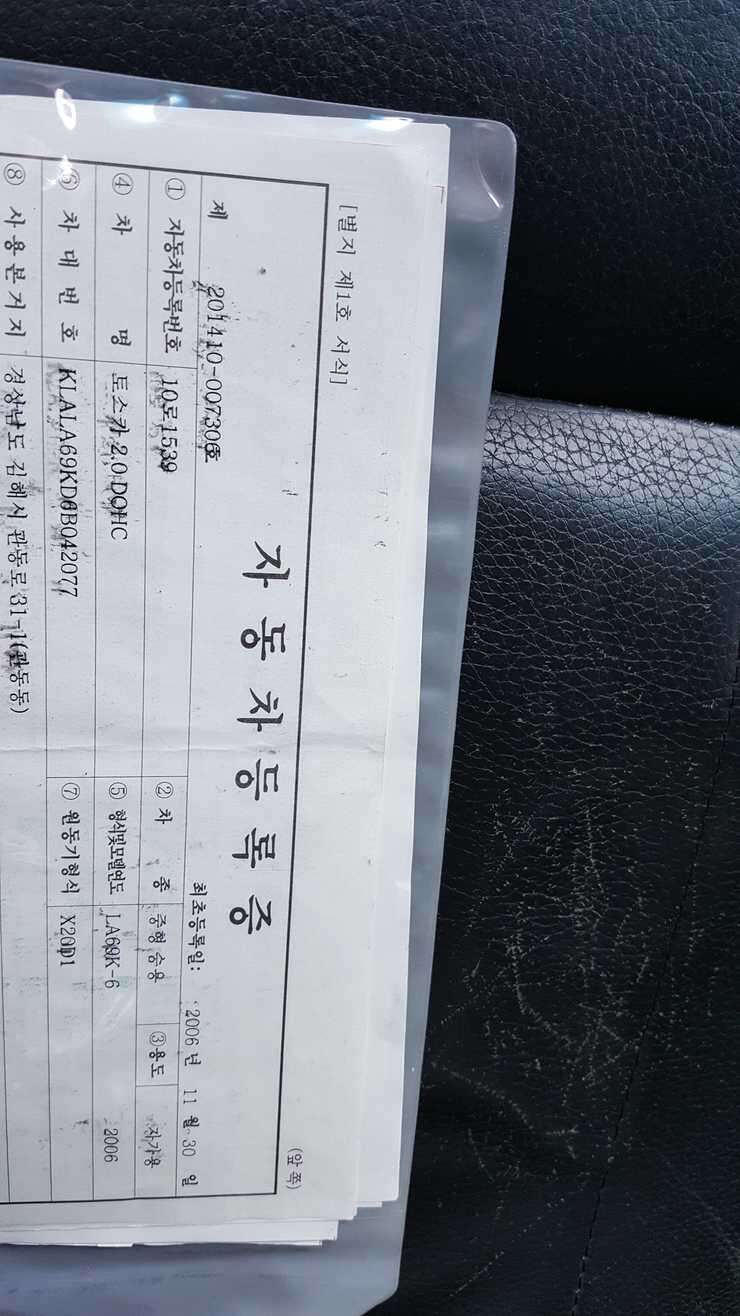 [별지 제1호 서식]
(앞 쪽)
자 동 차 등 록 증
제 201410-007306호
최초등록일: 2006 년 11 월 30 일
① 자동차등록번호 10로1539 ② 차 종 중형 승용 ③용도 자가용
④ 차 명 토스카 2.0 DOHC ⑤ 형식및모델연도 LA69K-6 2006
⑥ 차 대 번 호 KLALA69KD6B042077 ⑦ 원동기형식 X20D1
⑧ 사 용 본 거 지 경상남도 김해시 관동로 31-1(관동동)